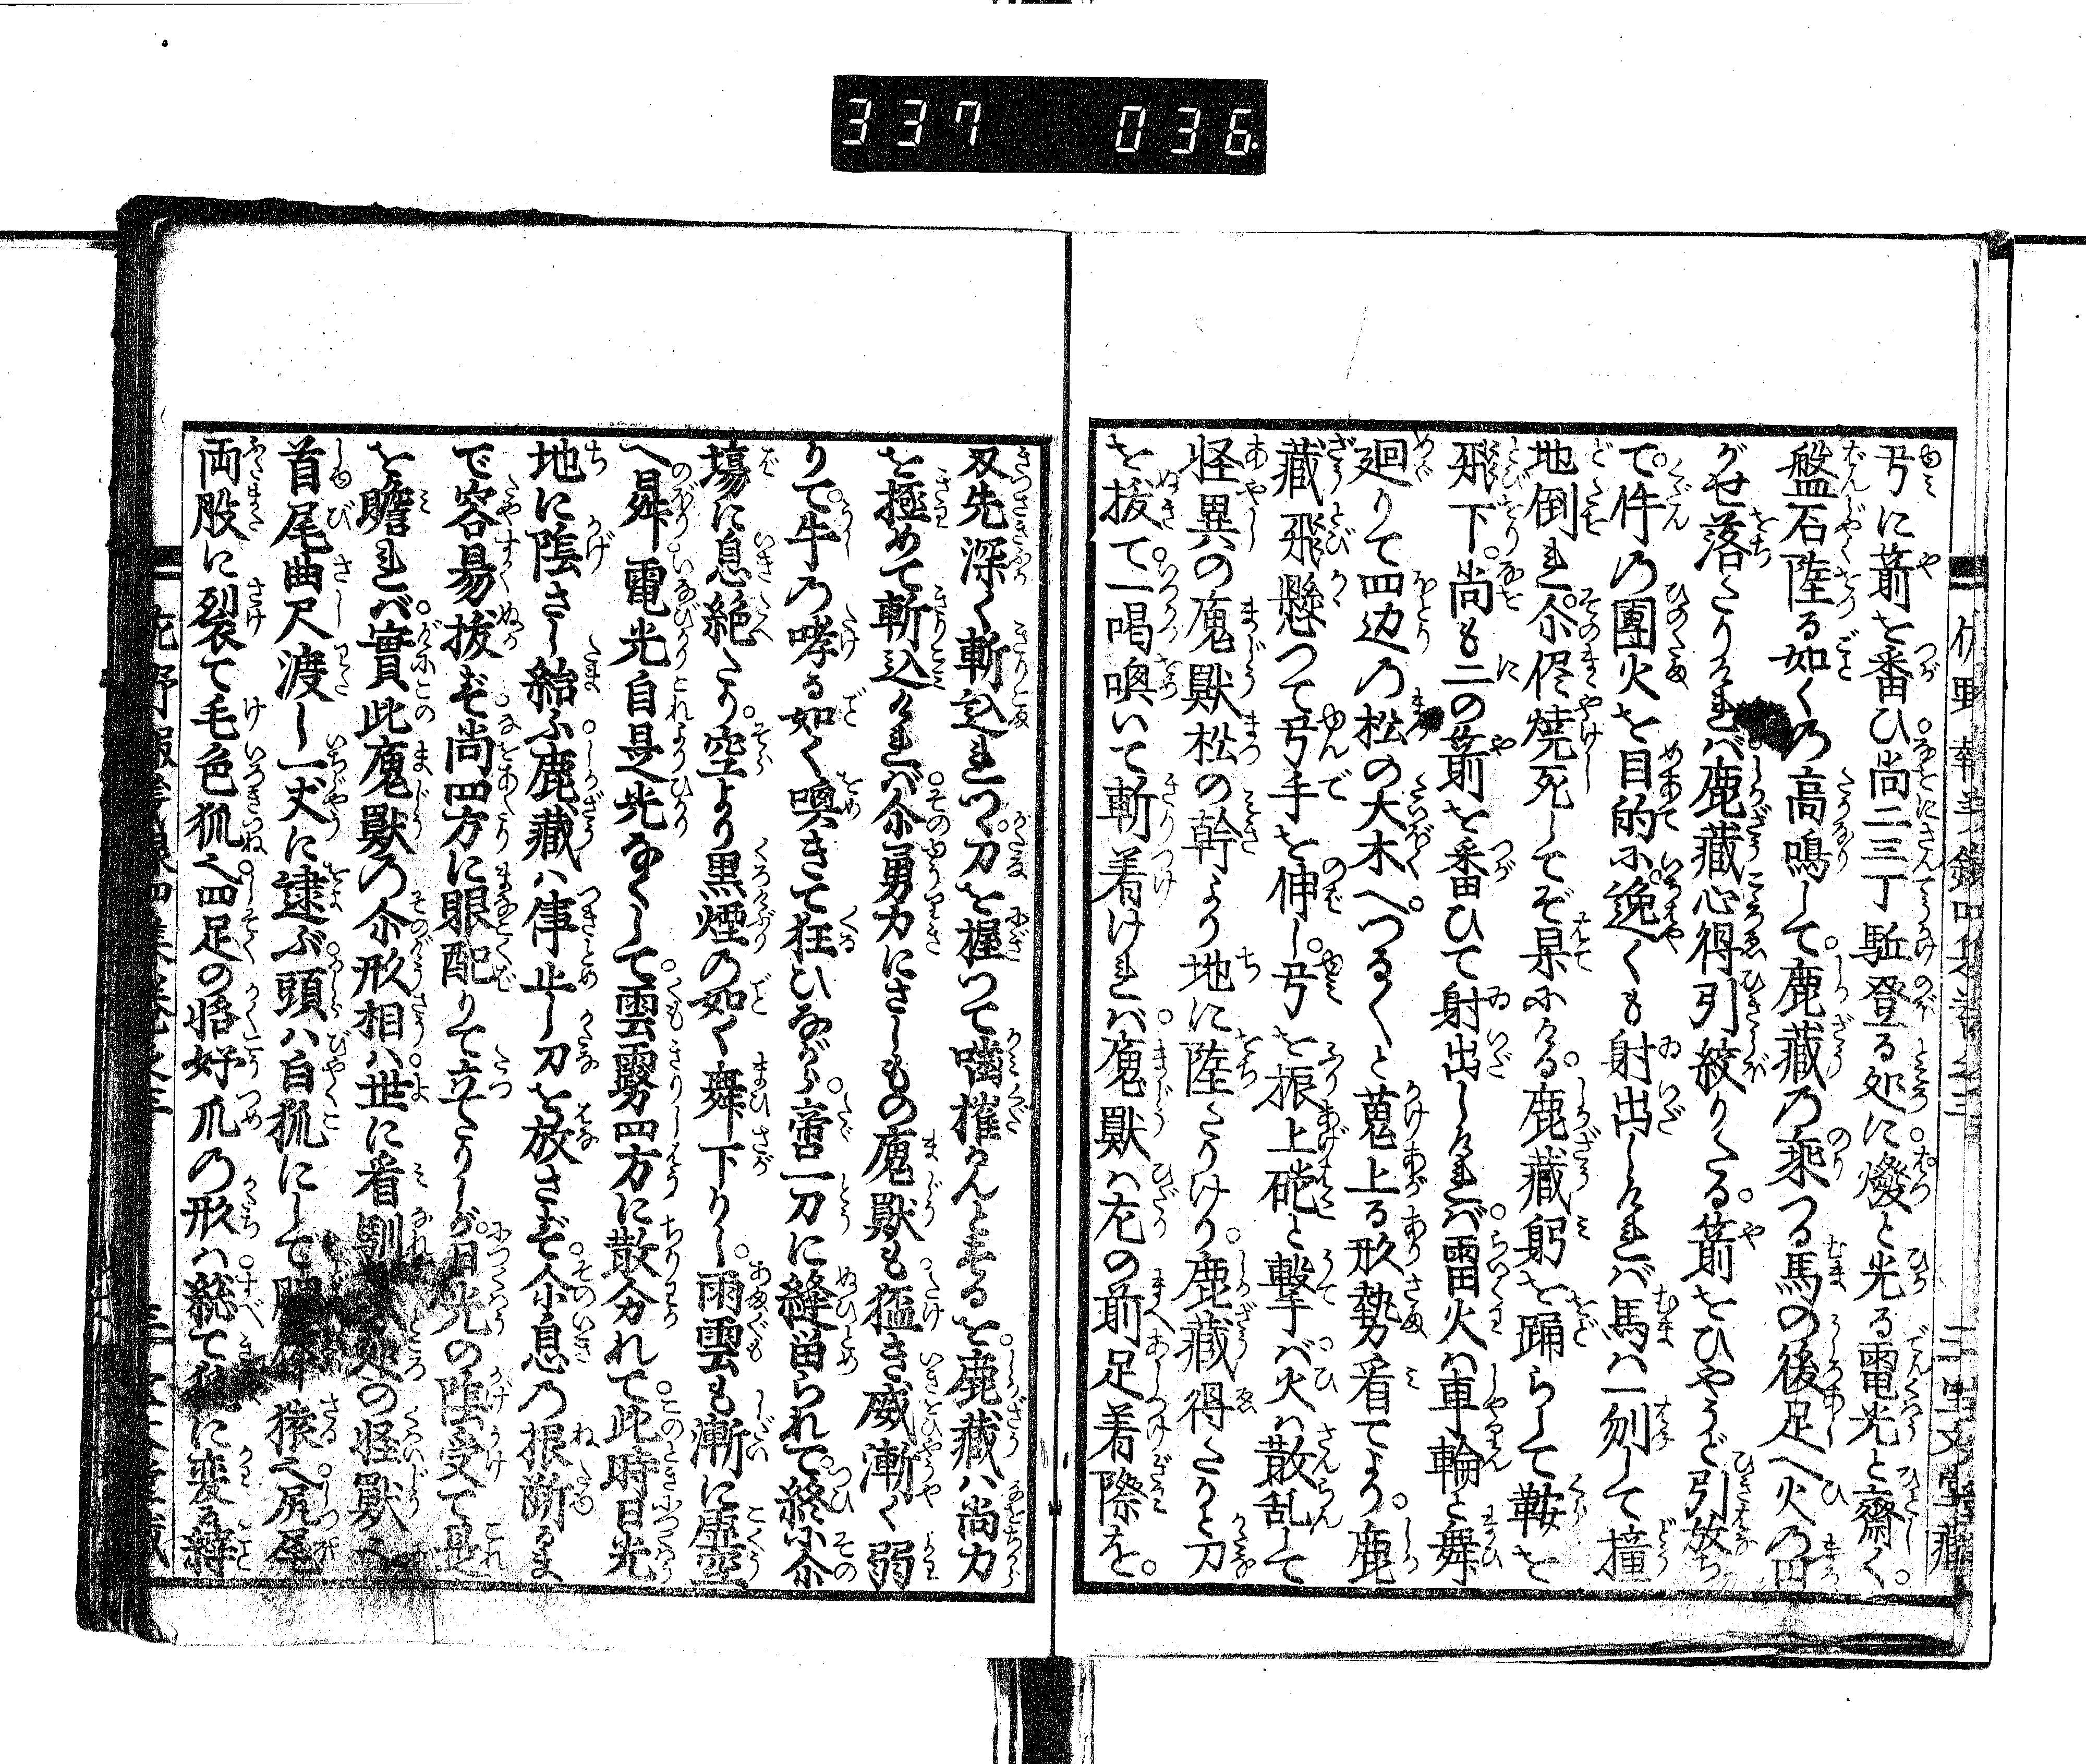 337 036
弓に箭を番ひ尚二三丁駈登る処に燈と光る電光と齋く。
盤石陸る如くの高鳴して。鹿藏乃乘つる馬の後足へ火の
がせ落たりけれバ。鹿藏心得引絞りたる。箭をひやうど引放ち
て。件の團火を目的に。逸くも射出しけれバ馬ハ一刎して撞
地倒れ。尒侭燒死してぞ杲にける。鹿藏躬を踊らして鞍を
飛下。尚も二の箭を番ひて射出しけれバ。雷火ハ車輪と舞
廻りて四辺の松の大木へ。つるくと蒐上る形勢看てより。鹿
藏飛懸つて弓手を伸し。弓を振上磤と擊バ。火ハ散乱して
怪異の魔獸松の幹より地に陸たりけり。鹿藏得たりと刀
を拔て。一喝喚いて斬着けれバ。魔獸ハ左の前足着際を。
刄先深く斬込れつ。刀を握つて嚙摧かんとするを。鹿藏ハ尚力
を極めて斬込けれバ。尒勇力にさしもの魔獸も。猛き威漸く弱
りて。牛の哮る如く喚きて狂ひながら。啻一刀に縫留られて。終に尒
塲に息絶たり。空より黒煙の如く舞下りし。雨雲も漸に虚空
へ舜電光自是光なくして。雲雾四方に散分れて。此時日光
地に陰さし給ふ。鹿藏ハ倳止し刀を放さず。尒息の根断るま
で容易拔ず。尚四方に眼配りて立たりしが。日光の陰受て是
を瞻れバ。實此魔獸の尒形相ハ。世に看馴処の怪獸へ
首尾曲尺渡し一丈に逮ぶ。頭ハ白狐にして 猿へ。尻尾
両股に裂て毛色狐之。四足の恪好爪の形ハ。総て に変る